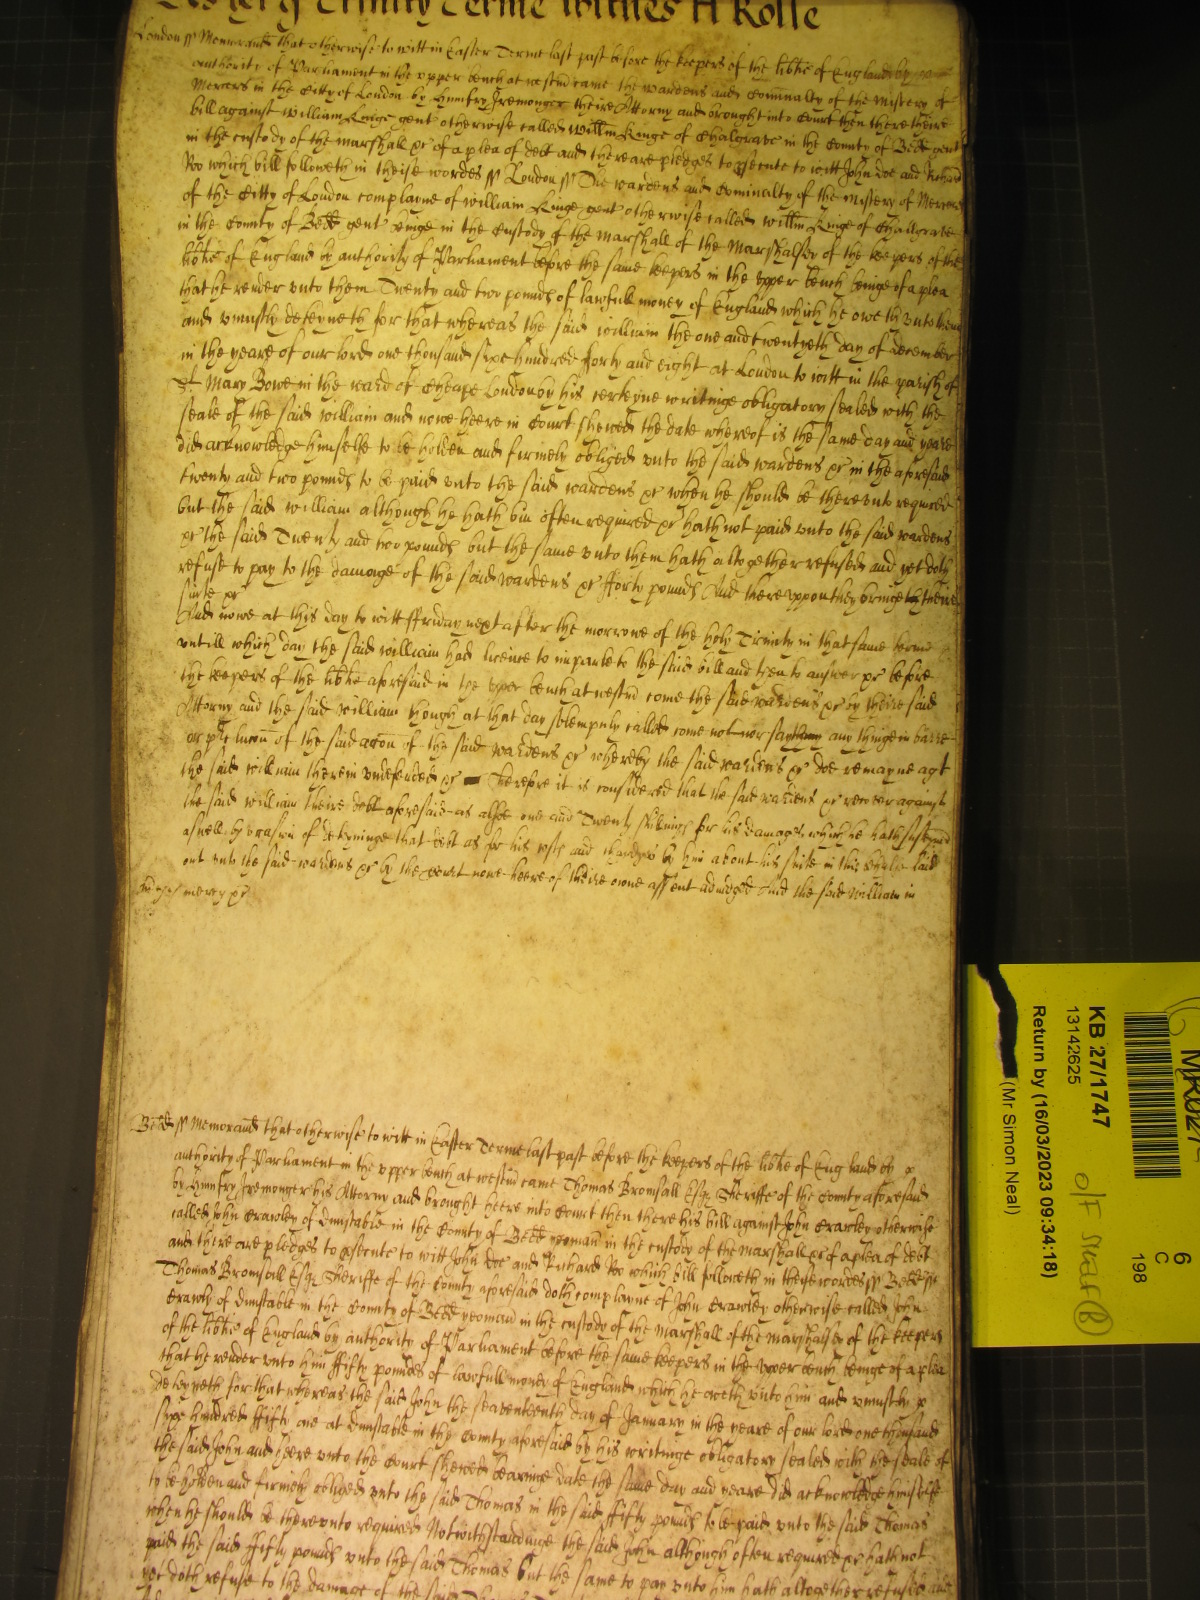 Trinity Terme Witnes H Rolle
London ss Memorand that otherwise to witt in Easter Terme last past before the keepers of the lib'tie of England by
authority of Parliament in the upper bench at westm' came the wardens and Cominalty of the Mistery of
Mercers in the Citty of London by Humfry Iremonger theire Attorny and brought into Court then there theire
bill against William Kinge gent otherwise called Willm Kinge of Chalgrave in the County of Bedd gent
in the custody of the marshall &c of a plea of debt and there are pledges to p'secute to witt John Doe and Richard
Roo which bill followeth in theise wordes ss London ss The wardens and Cominalty of the Mistery of Mercers
of the Citty of London complaine of william Kinge gent otherwise called willm Kinge of Chalgrave
in the County of Bedd gent beinge in the Custody of the Marshall of the Marshalsey of the keepers of the
lib'tie of England by authority of Parliament before the same keepers in the upper bench beinge of a plea
that he render unto them Twenty and two pounds of lawfull money of England which he oweth unto them
and uniustly deteyneth for that whereas the said william the one and twentyeth day of December
in the yeare of our lord one thousand sixe hundred forty and eight at London to witt in the parish of
St Mary Bowe in the ward of Cheape London by his certeyne writinge obligatory sealed with the
seale of the said william and nowe heere in Court shewed the date whereof is the same day and yeare
did acknowledge himselfe to be holden and firmely obliged unto the said wardens &c in the aforesaid
twenty and two pounds to be paid unto the said wardens &c when he should be thereunto required
but the said william although he hath bin often required &c hath not paid unto the said wardens
&c the said Twenty and two pounds but the same unto them hath altogether refused and yet doth
refuse to pay to the damage of the said wardens &c fforty pounds And thereuppon they bringe theire
suite &c
And nowe at this day to witt ffriday next after the morrowe of the holy Trinity in that same terme
untill which day the said william had licence to imparle to the said bill and then to answer &c before
the keepers of the lib'tie aforesaid in the upper bench at westm' come the said wardens &c by theire said
Attorny and the said william though at that day solempnly called come not nor say any thinge in barre
or p'clucon of the said accon of the said wardens &c whereby the said wardens &c doe remayne ag't
the said william therein undefended &c Therefore it is considered that the said wardens &c recover against
the said william theire debt aforesaid as alsoe one and Twenty shillings for his damages which he hath susteyned
aswell by reason of deteyninge that debt as for his costs and chardges by him about his suite in this behalfe laid
out unto the said wardens &c by the Court nowe heere of theire owne assent adiudged And the said William in
mercy &c
Bedd ss Memorand that otherwise to witt in Easter Terme last past before the keepers of the lib'tie of England by
authority of Parliament in the upper bench at westm' came Thomas Bromsall Esqr Sheriffe of the County aforesaid
by Humfry Iremonger his Attorny and brought heere into Court then there his bill against John Crawley otherwise
called John Crawley of Dunstable in the County of Bedd yeoman in the custody of the marshall &c of a plea of debt
and there are pledges to p'secute to witt John Doe and Richard Roo which bill followeth in theise wordes ss Bedd ss
Thomas Bromsall Esqr Sheriffe of the County aforesaid doth complayne of John Crawley otherwise called John
Crawly of Dunstable in the County of Bedd yeoman in the custody of the marshall of the marshalsey of the keepers
of the lib'tie of England by authority of Parliament before the same keepers in the upper bench beinge of a plea
that he render unto him ffifty poundes of lawfull money of England which he oweth unto him and uniustly
deteyneth for that whereas the said John the seaventeenth day of January in the yeare of our lord one thousand
sixe hundred ffifty one at Dunstable in the County aforesaid by his writinge obligatory sealed with the seale of
the said John and heere unto the Court shewed bearinge date the same day and yeare did acknowledge himselfe
to be holden and firmely obliged unto the said Thomas in the said ffifty pounds to be paid unto the said Thomas
when he should be thereunto required Notwithstandinge the said John although often required &c hath not
paid the said ffifty pounds unto the said Thomas but the same to pay unto him hath altogether refused and
yet doth refuse to the damage of the said
KB 27/1747
13142625
Return by (16/03/2023 09:34:18)
(Mr Simon Neal)
6
C
198